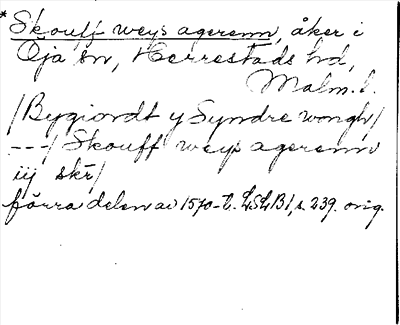 * Skouff weys agerenn, åker i
Öja sn, Herrestads hd,
Malm. l.
/Bygiordt y Syndre wongh/
---/ Skouff weys agerenn
iij skr/
förra delen av 1570-t. LSLB1, s. 239. orig.